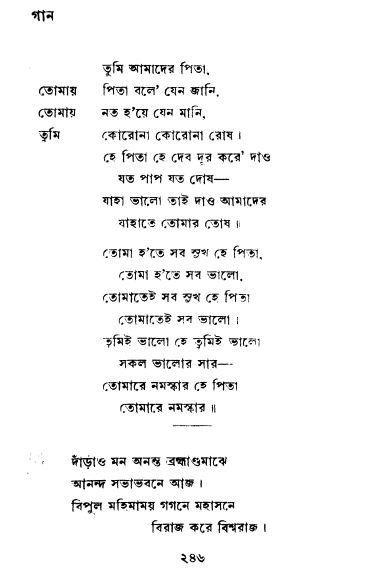 গান
তুমি আমাদের পিতা,
তোমায় পিতা বলে' যেন জানি,
তোমায় নত হ'য়ে যেন মানি,
তুমি কোরোনা কোরোনা রোষ।
হে পিতা হে দেব দূর করে' দাও
যত পাপ যত দোষ—
যাহা ভালো তাই দাও আমাদের
যাহাতে তোমার তোষ॥
তোমা হ'তে সব সুখ হে পিতা,
তোমা হ'তে সব ভালো,
তোমাতেই সব সুখ হে পিতা
তোমাতেই সব ভালো।
তুমিই ভালো হে তুমিই ভালো
সকল ভালোর সার—
তোমারে নমস্কার হে পিতা
তোমারে নমস্কার॥
দাঁড়াও মন অনন্ত ব্রহ্মাণ্ডমাঝে
আনন্দ সভাভবনে আজ।
বিপুল মহিমাময় গগনে মহাসনে
বিরাজ করে বিশ্বরাজ।
২৪৬